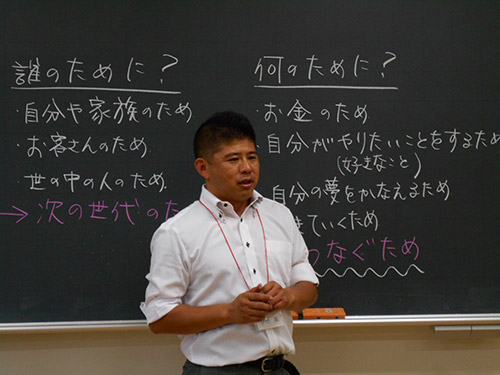 誰のために?
・自分や家族のため
・お客さんのため
・世の中の人のため
→次の世代のた
何のために?
・お金のため
自分がやりたいことをするため
(好きなこと)
自分の夢をかなえるため
きていくため
つなぐため